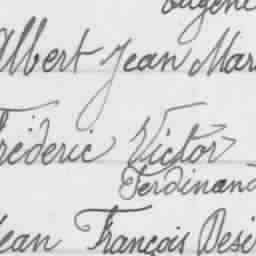 Eugène
Albert Jean Mar
Fréderic Victor
Ferdinand
Jean François Desi